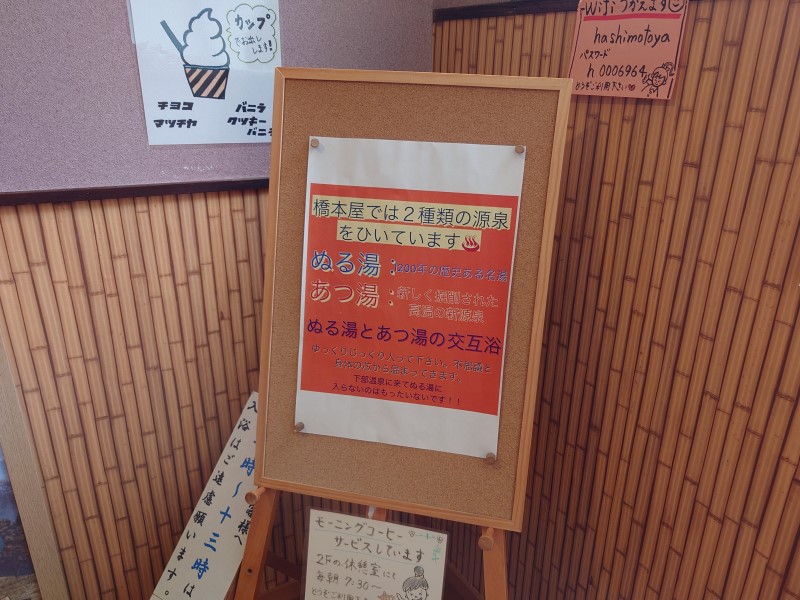 カップ
でお出し
します!
チヨコ
マッチヤ
バニラ
クッキー
バニラ
Wifiつかえます
hashimotoya
パスワード
h 0006964
どうぞご利用下さい
橋本屋では2種類の源泉
をひいています♨
ぬる湯:1200年の歴史ある名湯
あつ湯:新しく掘削された
高温の新源泉
ぬる湯とあつ湯の交互浴
ゆっくりじっくり入って下さい。不思議と
身体の芯から温まってきます。
下部温泉に来てぬる湯に
入らないのはもったいないです!!
様へ
時~十三時は
入浴はご遠慮願います。
モーニングコーヒー
サービスしています
2Fの休憩室にて
毎朝 7:30~
どうぞご利用下さ